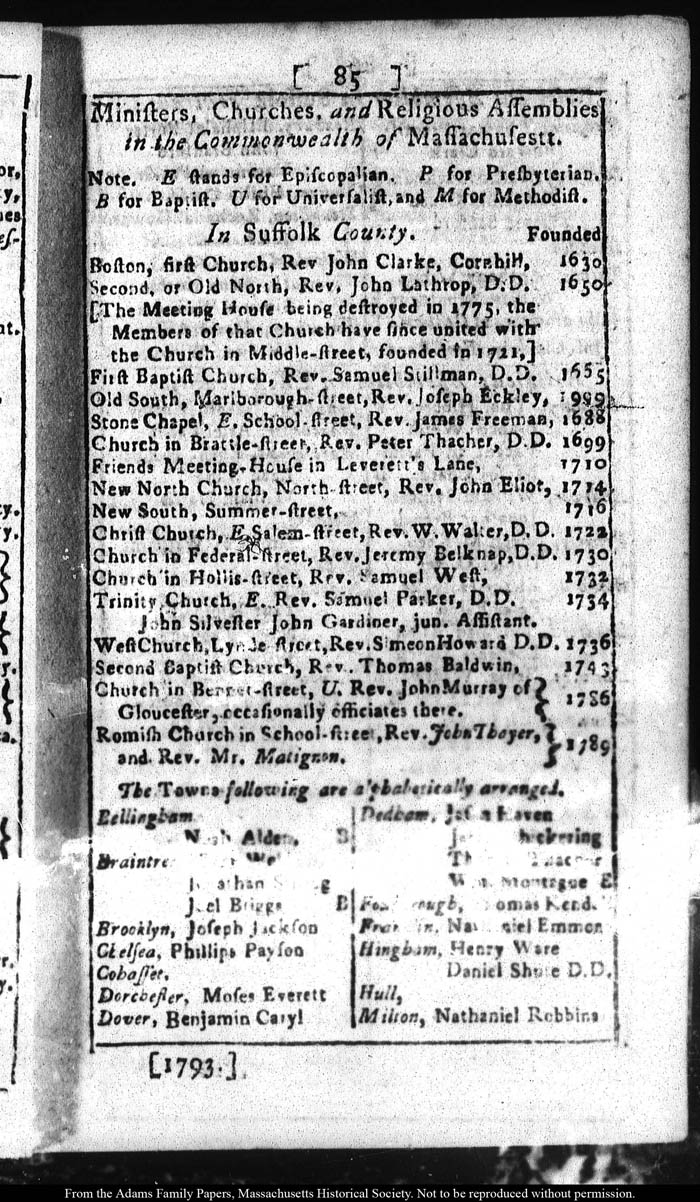 [ 85 ]
Miniſters, Churches, and Religious Aſſemblies
in the Commonwealth of Maſſachuſestt.
Note. E ſtands for Epiſcopalian. P for Preſbyterian.
B for Baptiſt. U for Univerſaliſt, and M for Methodiſt.
In Suffolk County. Founded
Boſton, firſt Church, Rev John Clarke, Cornhill, 1630
Second, or Old North, Rev. John Lathrop, D.D. 1650
[The Meeting Houſe being deſtroyed in 1775, the
Members of that Church have ſince united with
the Church in Middle-ſtreet, founded in 1721,]
Firſt Baptiſt Church, Rev. Samuel Stillman, D.D. 1665
Old South, Marlborough-ſtreet, Rev. Joſeph Eckley,
Stone Chapel, E. School-ſtreet, Rev. James Freeman, 1688
Church in Brattle-ſtreet, Rev. Peter Thacher, D.D. 1699
Friends Meeting-Houſe in Leverett's Lane, 1710
New North Church, North-ſtreet, Rev. John Eliot, 1714
New South, Summer-ſtreet, 1716
Chriſt Church, E. Salem-ſtreet, Rev. W. Walter, D.D. 1722
Church in Federal-ſtreet, Rev. Jeremy Belknap, D.D. 1730
Church in Hollis-ſtreet, Rev. Samuel Weſt, 1732
Trinity Church, E. Rev. Samuel Parker, D.D. 1734
John Silveſter John Gardiner, jun. Aſſiſtant.
Weſt Church, Lynde ſtreet, Rev. Simeon Howard D.D. 1736
Second Baptiſt Church, Rev. Thomas Baldwin, 1743
Church in Bennet-ſtreet, U. Rev. John Murray of
Glouceſter, occaſionally officiates there. 1786
Romiſh Church in School-ſtreet, Rev. John Thayer,
and Rev. Mr. Matignon. 1789
The Towns following are alphabetically arranged.
Bellingham
Noah Alden, B
Braintre
Jonathan
Joel Briggs B
Brooklyn, Joſeph Jackſon
Chelſea, Phillips Payſon
Cohaſſet,
Dorcheſter, Moſes Everett
Dover, Benjamin Caryl
Dedham, Haven
Montague E
Franklin, Nathaniel Emmon
Hingham, Henry Ware
Daniel Shute D.D.
Hull,
Milton, Nathaniel Robbins
[1793.]
From the Adams Family Papers, Massachusetts Historical Society. Not to be reproduced without permission.